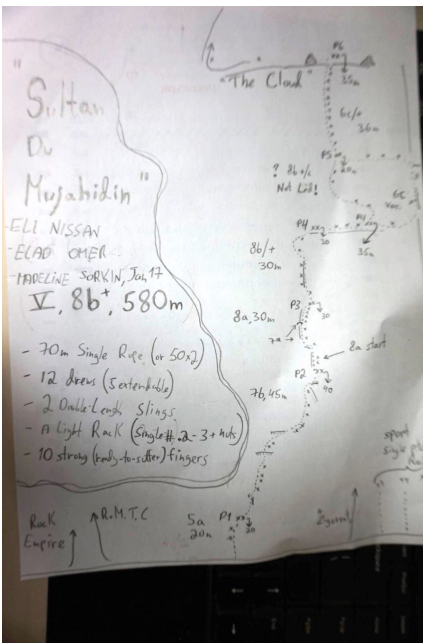 "Sultan
Du
Mujahidin"
-ELI NISSAN
-ELAD OMER
-MADELINE SORKIN, Jan, 17
V, 8b+, 580m
- 70m Single Rope (or 50x2)
- 12 draws (5 extendable)
- 2 Double-Length Slings
- A Light Rack (Single #.2-3 + nuts)
- 10 strong (ready-to-suffer) fingers
Rock
Empire
R.M.T.C
"The Cloud"
P6
35m
6c/+
36m
P5
20m
? 8b+/c
Not Led!
6c
P4
P4
20
35m
8b/+
30m
P3
30
8a, 30m
7a
8a start
P2
40
7b, 45m
P1
20
5a
20m
sport